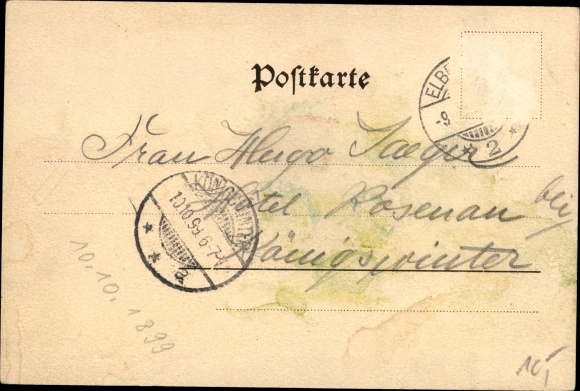 Postkarte
ELB
-9
* 2 *
Frau Hugo Jaeger
Hotel Rosenau bei
Königswinter
KÖNIGSWINTER
10.10.99. 6-7N
* * 2
10.10.1899
10,